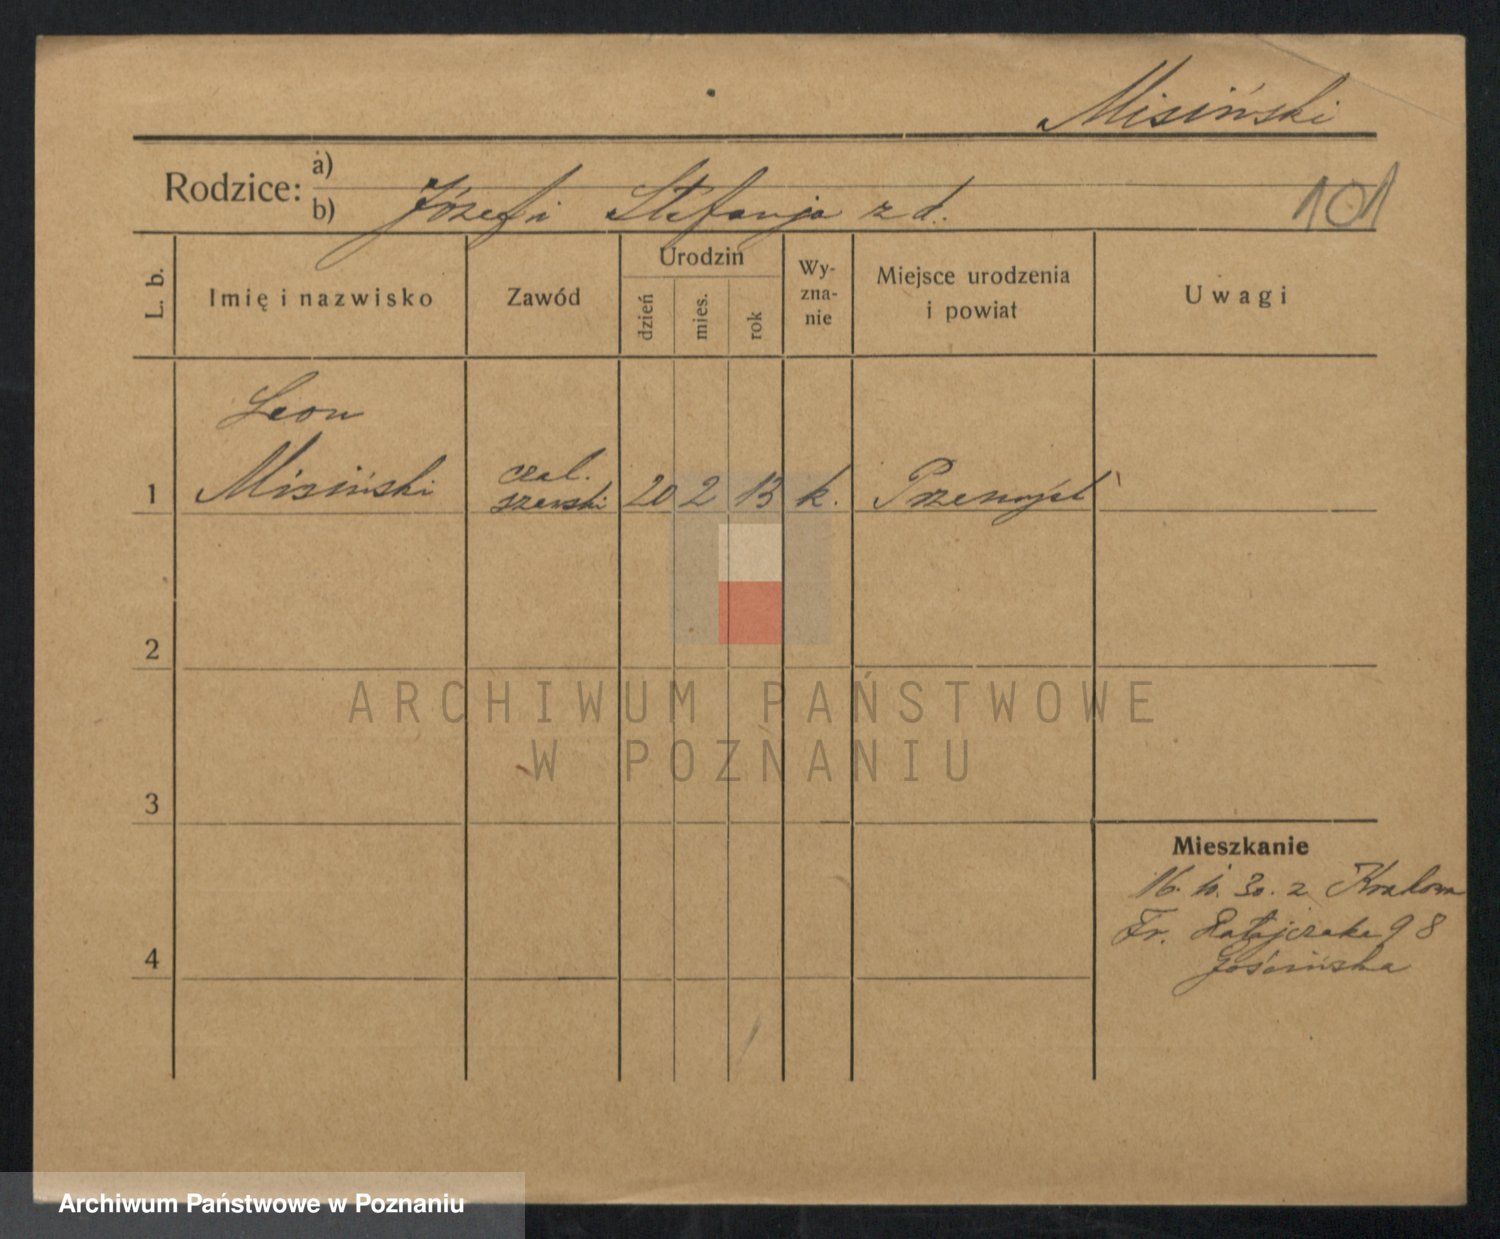 Misiński
Rodzice: a)
b) Józef i Stefanja z d.
101
L. b.
Imię i nazwisko
Zawód
Urodzin
dzień
mies.
rok
Wy-
zna-
nie
Miejsce urodzenia
i powiat
Uwagi
Leon
1 Misiński
czel.
szewski 20 2 13 k. Przemyśl
2
3
4
Mieszkanie
16. 10. 30. z Krakowa
Fr. Ratajczaka 98
ARCHIWUM PAŃSTWOWE
W POZNANIU
Archiwum Państwowe w Poznaniu